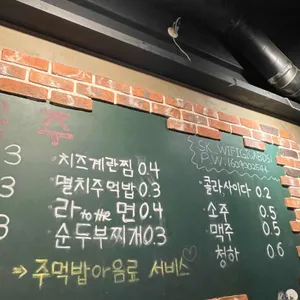 주
3
3
3
· 치즈계란찜 0.4
· 멸치주먹밥 0.3
· 라 to the 면 0.4
· 순두부찌개 0.3
⇒ 주먹밥아음료 서비스♡
· 콜라사이다 0.2
· 소주 0.5
· 맥주 0.5
· 청하 0.6